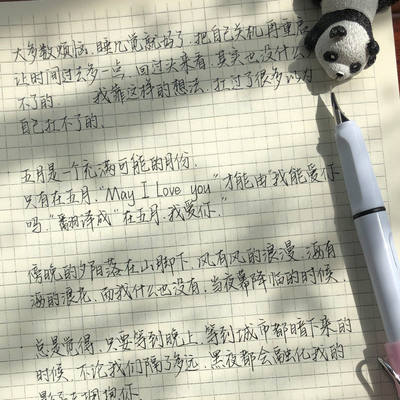 大多数烦恼、睡几觉就好了、把自己关机再重启
让时间过去多一点、回过头来看、其实也没什么大
不了的. 我靠这样的想法、扛过了很多以为
自己扛不了的、
五月是一个充满可能的月份.
只有在五月."May I love you"才能由"我能爱你
吗、"翻译成"在五月.我爱你."
傍晚的夕阳落在山脚下、风有风的浪漫、海有
海的浪花、而我什么也没有、当夜幕降临的时候、
总是觉得、只要等到晚上、等到城市都暗下来的
时候、不论我们隔了多远、黑夜都会融化我的
影子去拥抱你.